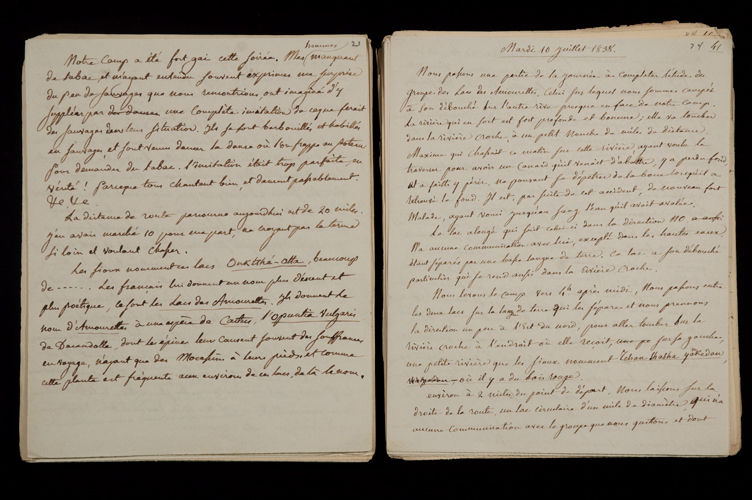 23
Notre Camp a été fort gai cette soirée. Mes
de tabac et m'ayant entendu souvent exprimer ma surprise
du peu de sauvages que nous rencontrions, ont imaginé d'y
suppléer par une complète imitation de ce que ferait
des sauvages dans leur situation. Ils se sont barbouillés et habillés
en sauvages et sont venus danser la danse où l'on frappe au poteau
pour demander du tabac. L'imitation était trop parfaite, en
vérité! parceque tous chantent bien et dansent passablement.
&c. &c.
La distance de route parcourue aujourd'hui est de 20 miles.
j'en avais marché 10 pour ma part, ne croyant pas le terme
si loin et voulant chasser.
Les sioux nomment ces lacs beaucoup
de ----- . Les français lui donnent un nom plus décent et
plus poétique, ce sont les Lacs des Amourettes. Ils donnent le
nom d'Amourettes à une espèce de Cactus, l'Opuntia Vulgaris
de Decandolle, dont les épines leur causent souvent des souffrances
en voyage, n'ayant que des Mocassins à leurs pieds; et comme
cette plante est fréquente aux environs de ce lac, de là le nom.
41
Mardi 10 Juillet 1838.
Nous passons une partie de la journée à compléter l'étude du
groupe des Lacs des Amourettes, celui sur lequel nous sommes campés
a son débouché sur l'autre rive presque en face de notre camp.
La rivière qui en sort est fort profonde et bonne; elle va tomber
dans la rivière croche, à un petit nombre de miles de distance.
Maxime qui chassait ce matin sur cette rivière, ayant voulu la
traverser pour avoir un canard qu'il venait d'abattre, y a perdu fond
et a failli y périr, ne pouvant se dépétrer de la boue lorsqu'il a
retrouvé le fond. Il est, par suite de cet accident, de nouveau fort
malade, ayant vomi jusqu'au sang l'eau qu'il avait avalée.
Le lac alongé qui suit celui-ci dans la direction NO. à
n'a aucune communication avec lui, excepté dans les hautes eaux
étant séparés par une large langue de terre. Ce lac a son débouché
particulier qui se rend aussi dans la Rivière Croche.
Nous levons le camp vers 4h après midi. Nous passons entre
les deux lacs sur la langue de terre qui les sépare et nous prenons
la direction un peu à l'est du nord, pour aller tomber sur la
rivière croche à l'endroit où elle reçoit, un peu sur sa gauche,
une petite rivière que les sioux nomment
où il y a du bois rouge.
environ à 2 miles du point de départ. Nous laissons sur la
droite de la route, un lac circulaire d'un mile de diamètre, qui n'a
aucune communication avec le groupe que nous quittons et dont